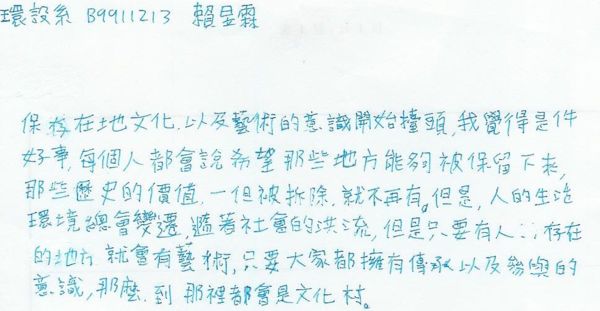 環設系 B9911213 賴昱霖
保存在地文化,以及藝術的意識開始擡頭,我覺得是件
好事,每個人都會說希望那些地方能夠被保留下來,
那些歷史的價值,一但被拆除,就不再有。但是,人的生活
環境總會變遷,隨著社會的洪流,但是只要有人 存在
的地方 就會有藝術,只要大家都擁有傳承以及參與的
意識,那麼,到那裡都會是文化村。